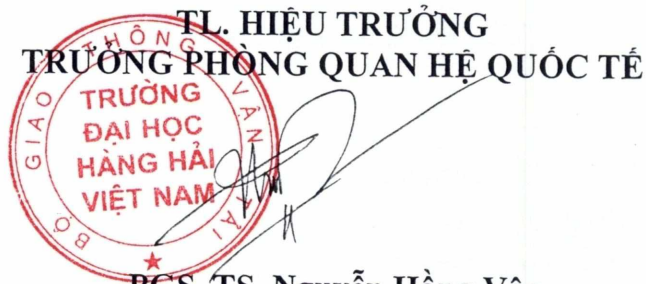 TL. HIỆU TRƯỞNG
TRƯỞNG PHÒNG QUAN HỆ QUỐC TẾ
BỘ GIAO THÔNG VẬN TẢI
TRƯỜNG
ĐẠI HỌC
HÀNG HẢI
VIỆT NAM
PGS. TS. Nguyễn Hồng Vân